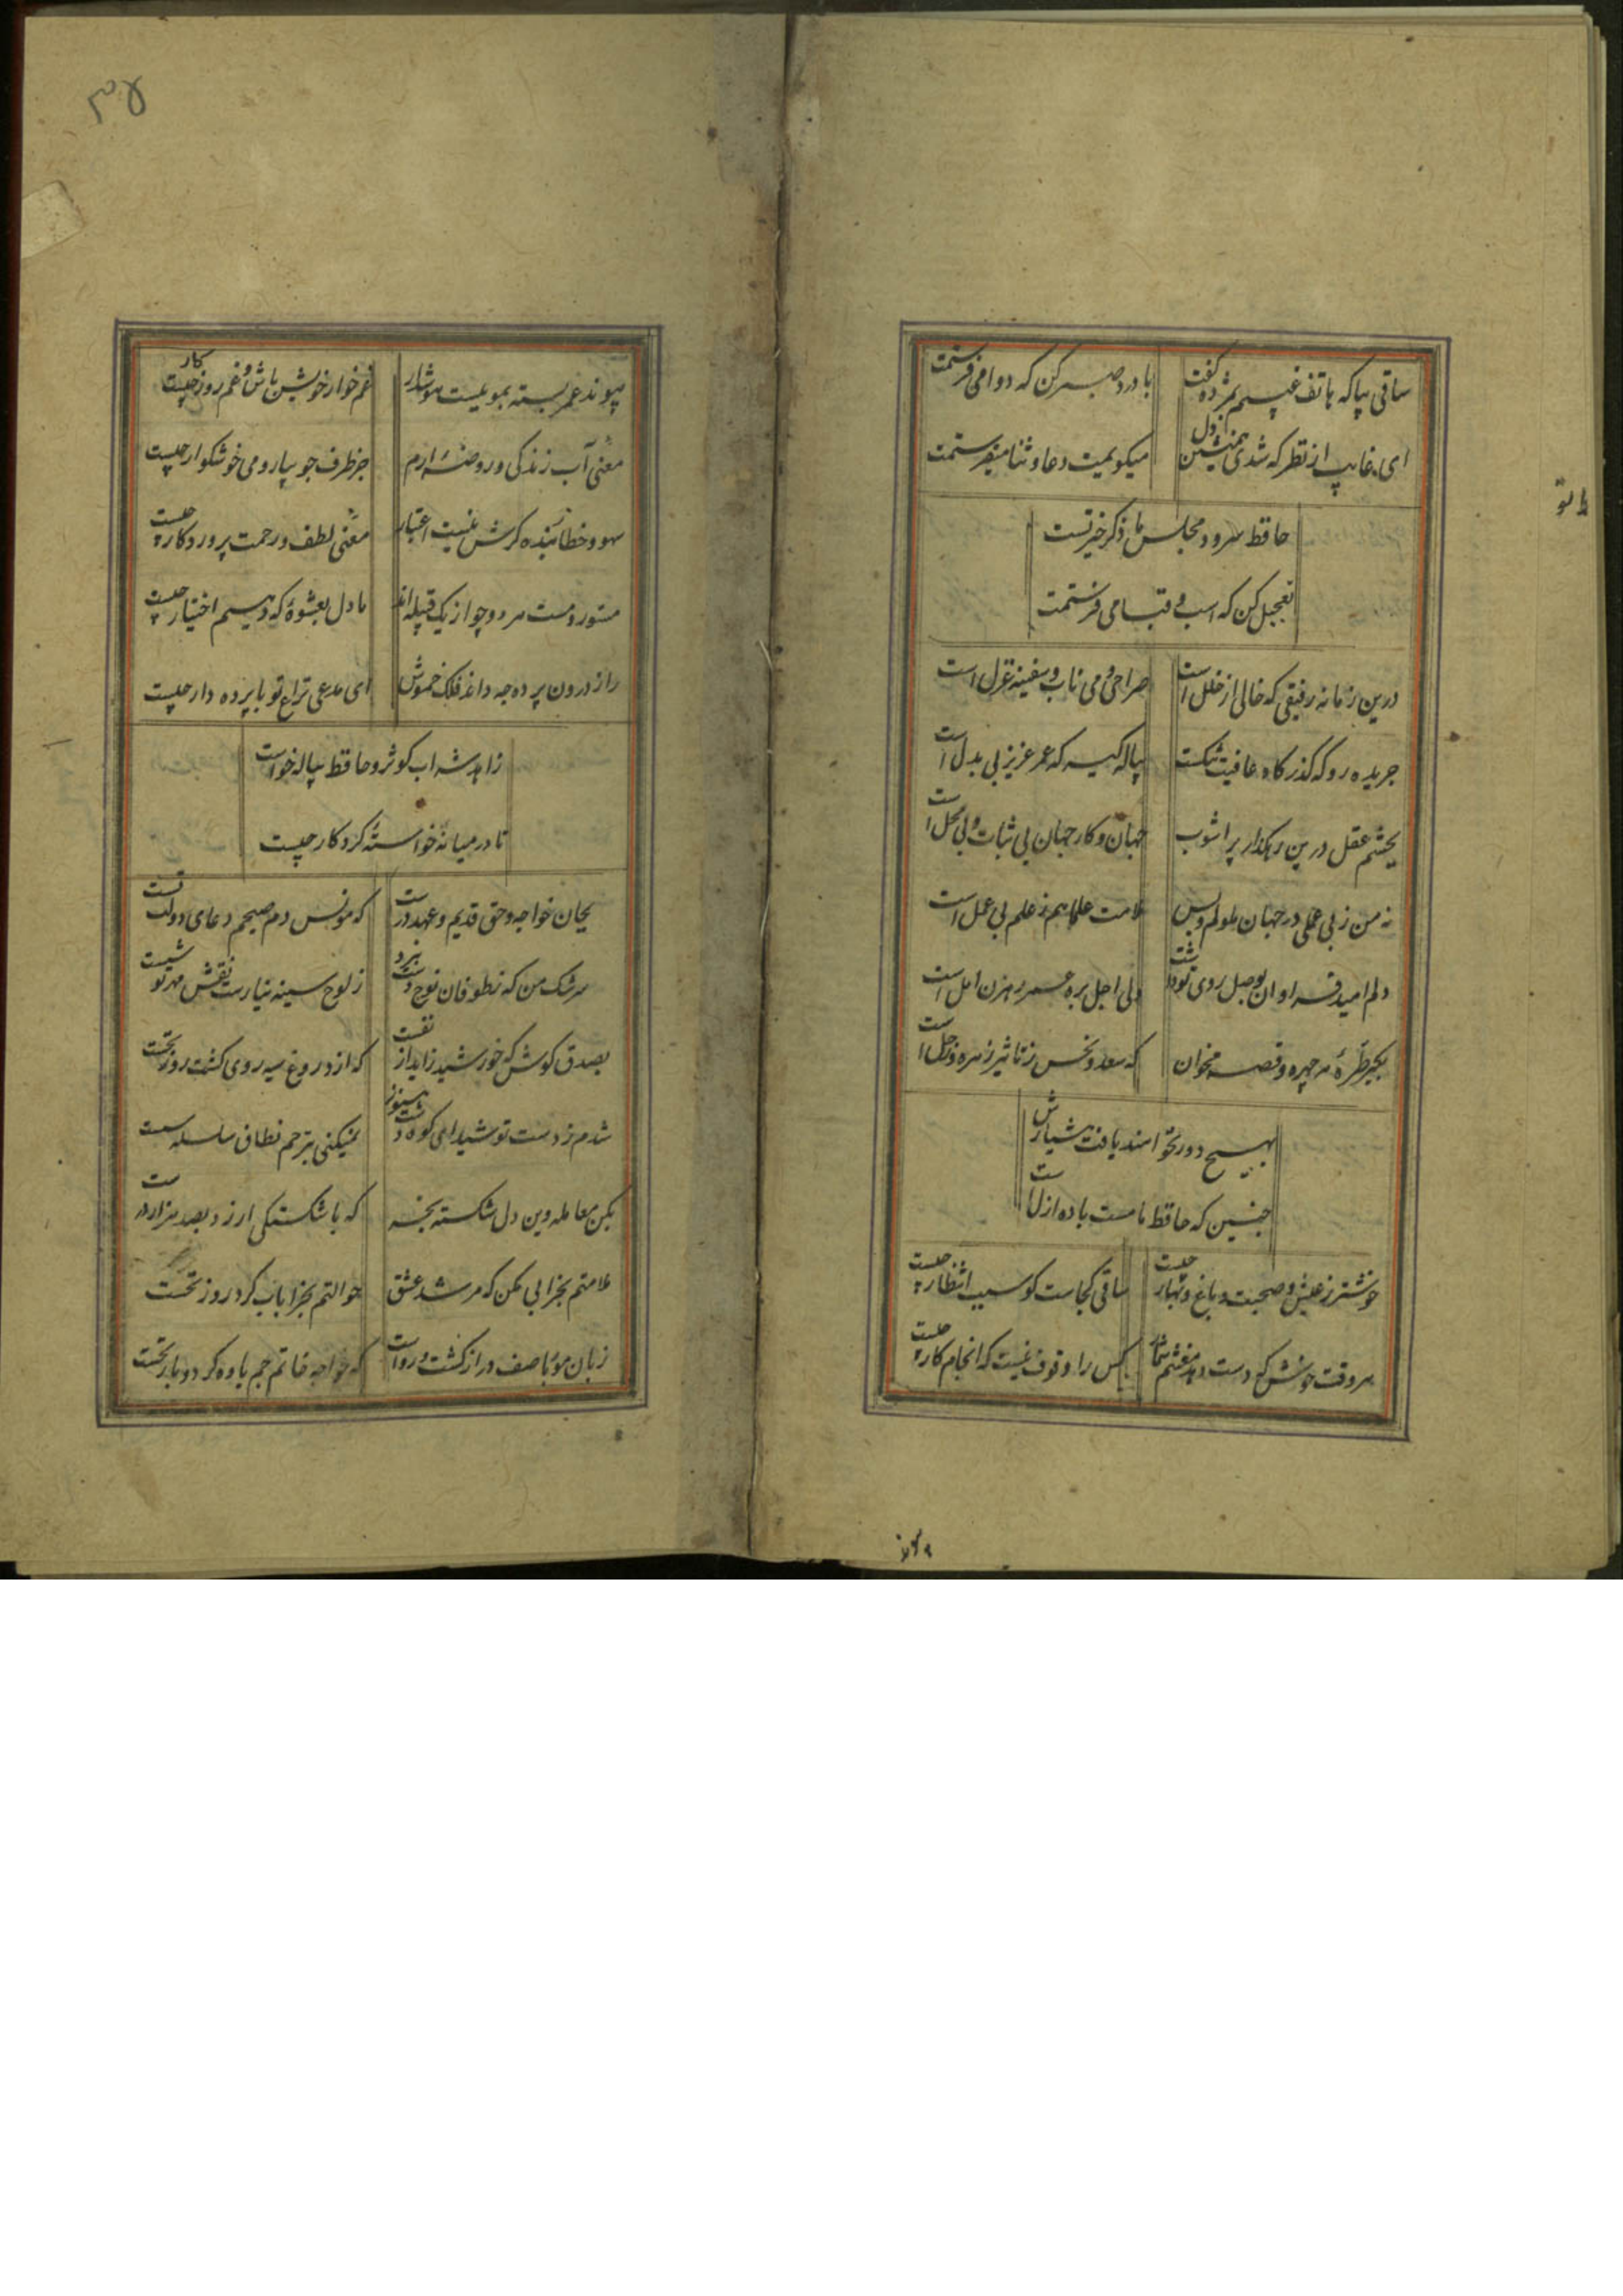 ساقی بیا که هاتف غیبم بمژده گفت با درد صبر کن که دوا می فرستمت
ای غایب از نظر که شدی همنشین دل میگویمت دعا و ثنا میفرستمت
حافظ سرود مجلس ما ذکر خیر تست
تعجیل کن که اسب و قبا می فرستمت
درین زمانه رفیقی که خالی از خلل است صراحی و می ناب و سفینه غزل است
جریده رو که گذرگاه عافیت تنگست پیاله گیر که عمر عزیز بی بدل است
بچشم عقل درین رهگذار پر اشوب جهان و کار جهان بی ثبات و بی محل است
نه من ز بی عملی در جهان ملولم و بس ملامت علما هم ز علم بی عمل است
دلم امید فراوان بوصل روی تو داشت ولی اجل بره عمر رهزن امل است
بگیر طرهٔ مه چهره و قصه مخوان که سعد و نحس ز تاثیر زهره و زحل است
بهیچ دور نخواهند یافت هشیارش
چنین که حافظ ما مست باده ازل است
خوشتر ز عیش و صحبت و باغ و بهار چیست ساقی کجاست گو سبب انتظار چیست
هر وقت خوش که دست دهد مغتنم شمار کس را وقوف نیست که انجام کار چیست
۳۴
پیوند عمر بسته بمویست هوش دار غم خوار خویش باش و غم روزکار چیست
معنی آب زندگی و روضهٔ ارم جز طرف جویبار و می خوشکوار چیست
سهو و خطا بنده گرش نیست اعتبار معنی لطف و رحمت پروردکار چیست
مستور و مست هر دو چو از یک قبیله اند ما دل بعشوهٔ که دهیم اختیار چیست
راز درون پرده چه داند فلک خموش ای مدعی نزاع تو با پرده دار چیست
زاهد شراب کوثر و حافظ پیاله خواست
تا در میانه خواستهٔ کردکار چیست
بجان خواجه و حق قدیم و عهد درست که مونس دم صبحم دعای دولت تست
سرشک من که ز طوفان نوح دست برد ز لوح سینه نیارست نقش مهر تو شست
بصدق کوش که خورشید زاید از نفست که از دروغ سیه روی گشت روز نخست
شدم ز دست تو شیدای کوه و دشت هنوز نمیکنی بترحم نطاق سلسله سست
بکن معامله وین دل شکسته بخر که با شکستگی ارزد بصد هزار درست
ملامتم بخرابی مکن که مرشد عشق حوالتم بخرابات کرد روز نخست
زبان مور باصف دراز گشت و رواست که خواجه خاتم جم یاوه کرد و باز نجست